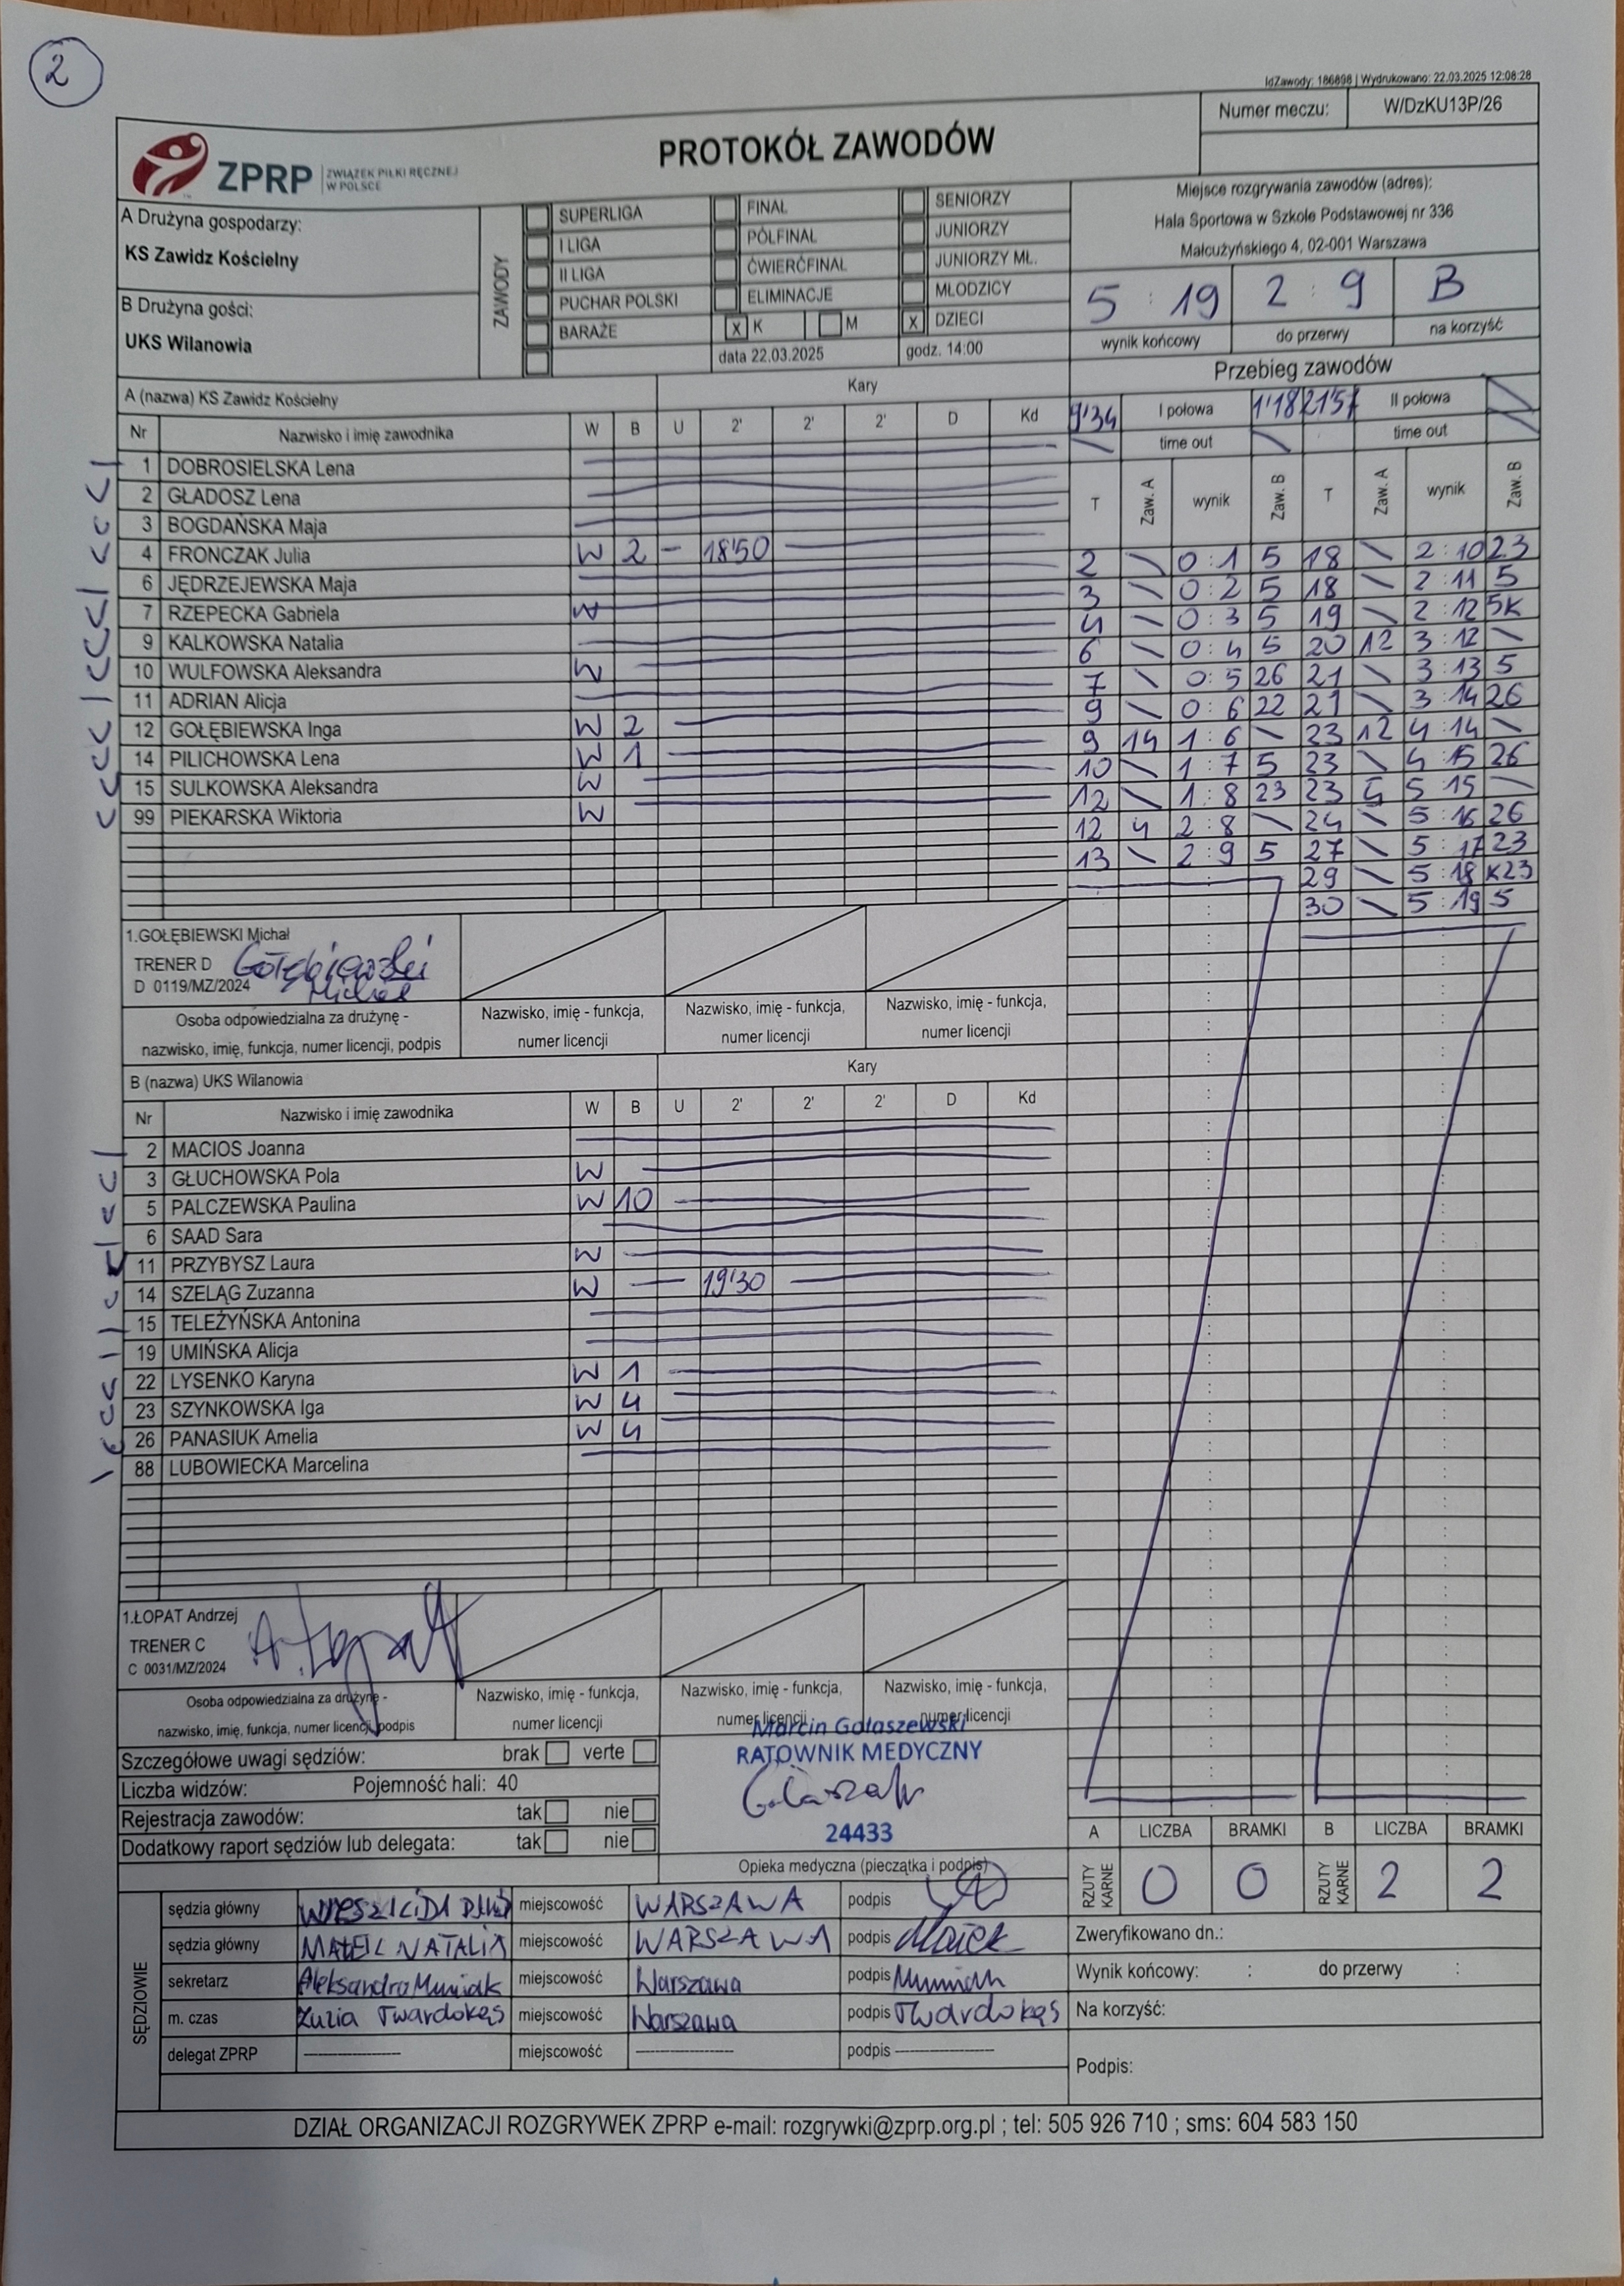 2
IdZawody: 186898 | Wydrukowano: 22.03.2025 12:08:28
Numer meczu: W/DzKU13P/26
ZPRP ZWIĄZEK PIŁKI RĘCZNEJ
W POLSCE
PROTOKÓŁ ZAWODÓW
A Drużyna gospodarzy:
KS Zawidz Kościelny
B Drużyna gości:
UKS Wilanowia
ZAWODY
SUPERLIGA FINAŁ SENIORZY
I LIGA PÓŁFINAŁ JUNIORZY
II LIGA ĆWIERĆFINAŁ JUNIORZY MŁ.
PUCHAR POLSKI ELIMINACJE MŁODZICY
BARAŻE X K M X DZIECI
data 22.03.2025 godz. 14:00
Miejsce rozgrywania zawodów (adres):
Hala Sportowa w Szkole Podstawowej nr 336
Małcużyńskiego 4, 02-001 Warszawa
5 : 19 2 : 9 B
wynik końcowy do przerwy na korzyść
Przebieg zawodów
9'34 I połowa 1'18 21'57 II połowa
time out time out
T Zaw. A wynik Zaw. B T Zaw. A wynik Zaw. B
2 \ 0:1 5 18 \ 2:10 23
3 \ 0:2 5 18 \ 2:11 5
4 \ 0:3 5 19 \ 2:12 5K
6 \ 0:4 5 20 12 3:12 \
7 \ 0:5 26 21 \ 3:13 5
9 \ 0:6 22 21 \ 3:14 26
9 14 1:6 \ 23 12 4:14 \
10 \ 1:7 5 23 \ 4:15 26
12 \ 1:8 23 23 4 5:15 \
12 4 2:8 \ 24 \ 5:16 26
13 \ 2:9 5 27 \ 5:17 23
29 \ 5:18 K23
30 \ 5:19 5
A (nazwa) KS Zawidz Kościelny Kary
Nr Nazwisko i imię zawodnika W B U 2' 2' 2' D Kd
1 DOBROSIELSKA Lena
2 GŁADOSZ Lena
3 BOGDAŃSKA Maja
4 FRONCZAK Julia W 2 - 18'50
6 JĘDRZEJEWSKA Maja
7 RZEPECKA Gabriela W
9 KALKOWSKA Natalia
10 WULFOWSKA Aleksandra W
11 ADRIAN Alicja
12 GOŁĘBIEWSKA Inga W 2
14 PILICHOWSKA Lena W 1
15 SULKOWSKA Aleksandra W
99 PIEKARSKA Wiktoria W
1.GOŁĘBIEWSKI Michał
TRENER D
D 0119/MZ/2024
Gołębiewski
Michał
Osoba odpowiedzialna za drużynę -
nazwisko, imię, funkcja, numer licencji, podpis
Nazwisko, imię - funkcja, Nazwisko, imię - funkcja, Nazwisko, imię - funkcja,
numer licencji numer licencji numer licencji
B (nazwa) UKS Wilanowia Kary
Nr Nazwisko i imię zawodnika W B U 2' 2' 2' D Kd
2 MACIOS Joanna
3 GŁUCHOWSKA Pola W
5 PALCZEWSKA Paulina W 10
6 SAAD Sara
11 PRZYBYSZ Laura W
14 SZELĄG Zuzanna W 19'30
15 TELEŻYŃSKA Antonina
19 UMIŃSKA Alicja
22 LYSENKO Karyna W 1
23 SZYNKOWSKA Iga W 4
26 PANASIUK Amelia W 4
88 LUBOWIECKA Marcelina
1.ŁOPAT Andrzej
TRENER C
C 0031/MZ/2024
A. Łopat
Osoba odpowiedzialna za drużynę -
nazwisko, imię, funkcja, numer licencji, podpis
Nazwisko, imię - funkcja, Nazwisko, imię - funkcja, Nazwisko, imię - funkcja,
numer licencji numer licencji numer licencji
Szczegółowe uwagi sędziów: brak verte
Liczba widzów: Pojemność hali: 40
Rejestracja zawodów: tak nie
Dodatkowy raport sędziów lub delegata: tak nie
Marcin Gołaszewski
RATOWNIK MEDYCZNY
24433
Opieka medyczna (pieczątka i podpis)
A LICZBA BRAMKI B LICZBA BRAMKI
RZUTY KARNE 0 0 RZUTY KARNE 2 2
SĘDZIOWIE
sędzia główny miejscowość WARSZAWA podpis
sędzia główny NATALIA miejscowość WARSZAWA podpis
sekretarz Aleksandra Muniak miejscowość Warszawa podpis Muniak
m. czas Zuzia Twardokęs miejscowość Warszawa podpis Twardokęs
delegat ZPRP miejscowość podpis
Zweryfikowano dn.:
Wynik końcowy: : do przerwy :
Na korzyść:
Podpis:
DZIAŁ ORGANIZACJI ROZGRYWEK ZPRP e-mail: rozgrywki@zprp.org.pl ; tel: 505 926 710 ; sms: 604 583 150